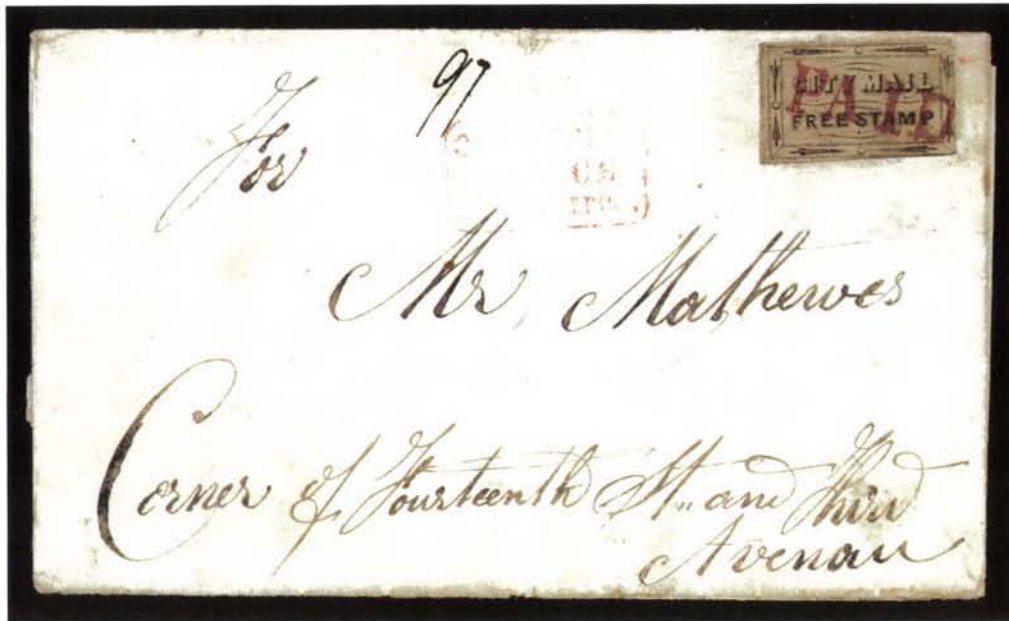 97
CITY MAIL
FREE STAMP
PAID
For
Mr Mathewes
Corner of Fourteenth St. and Third
Avenau